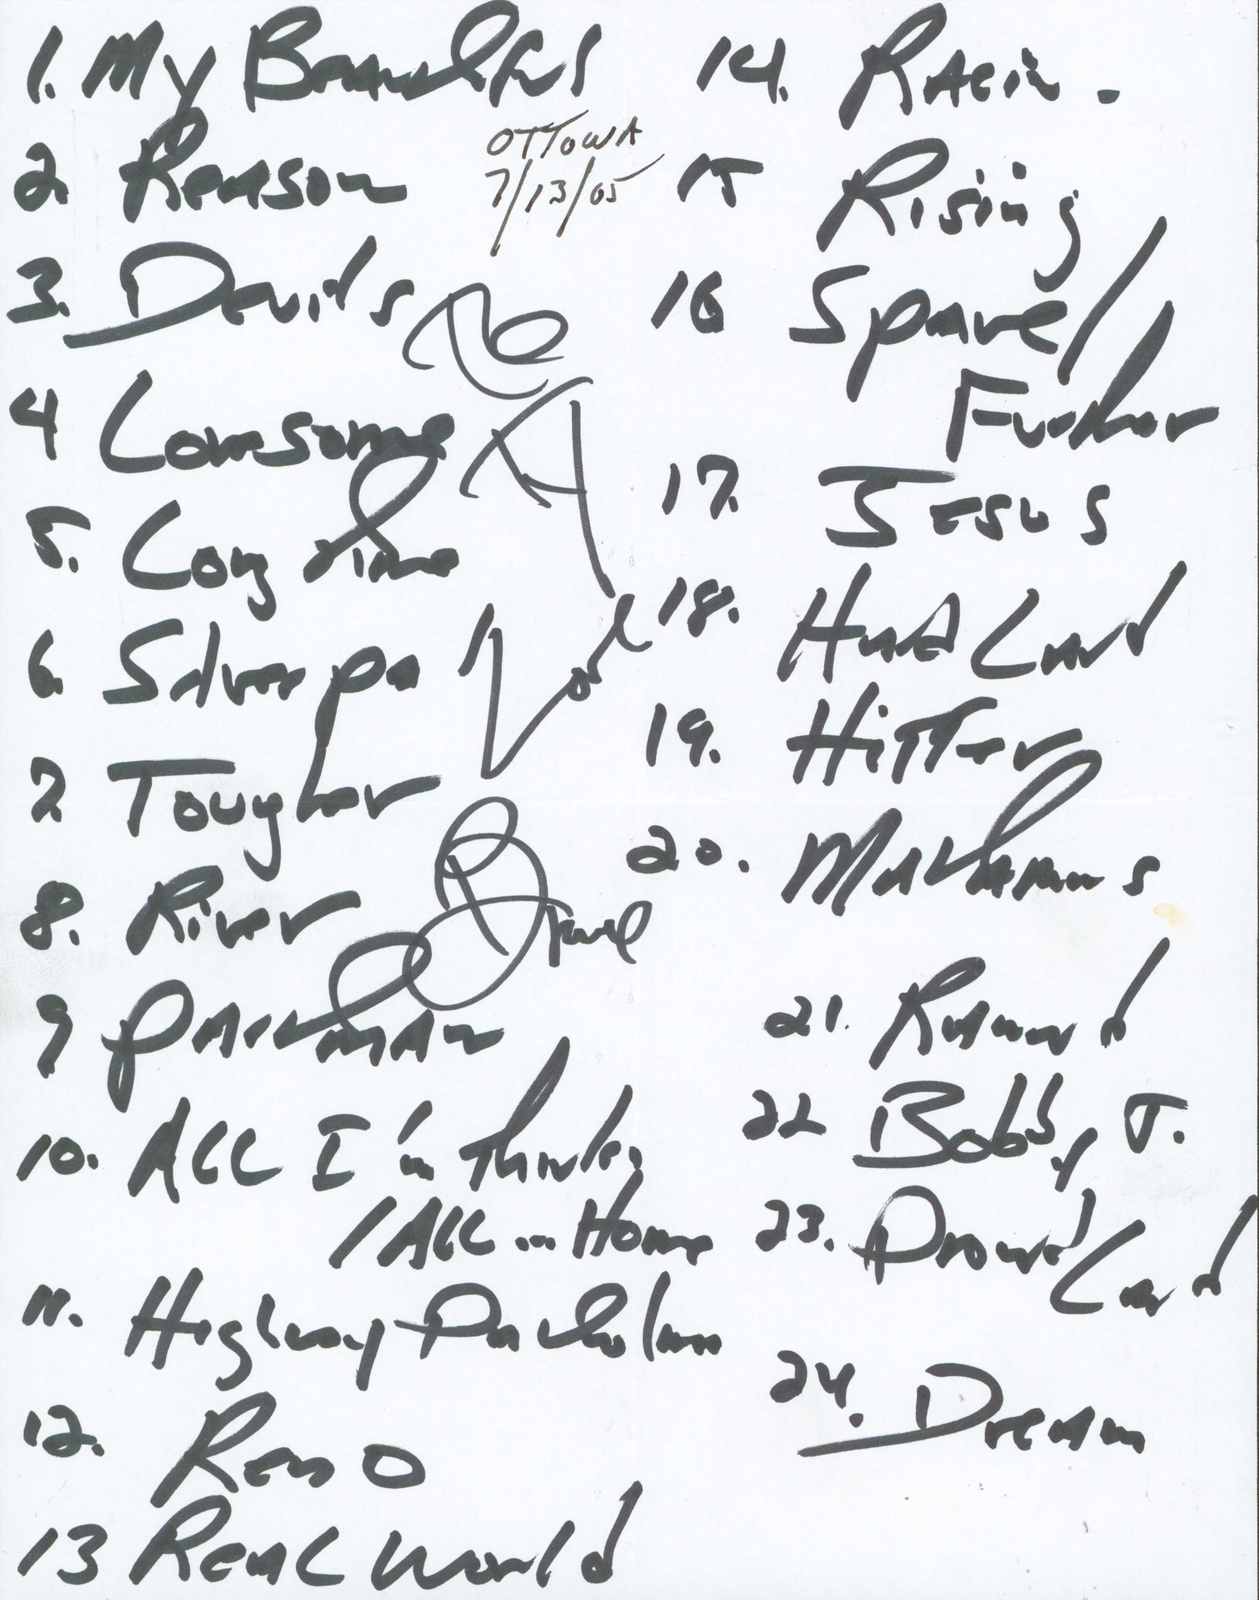 1. My Beautiful
2. Reason
OTTOWA
7/13/05
3. Devils
4 Lonesome
5. Long time
6. Silver pa
7 Tougher
8. River
9
10. ALL I'm thinkin
/ ALL ... Home
11. Highway Patrolman
12. Reno
13 Real World
14. Racin.
15 Rising
16 Spare/
Further
17. Jesus
18. Hard Land
19. Hitter
20. Matamoros
21. Ruined
22 Bobby J.
23. Promised Land
24. Dream